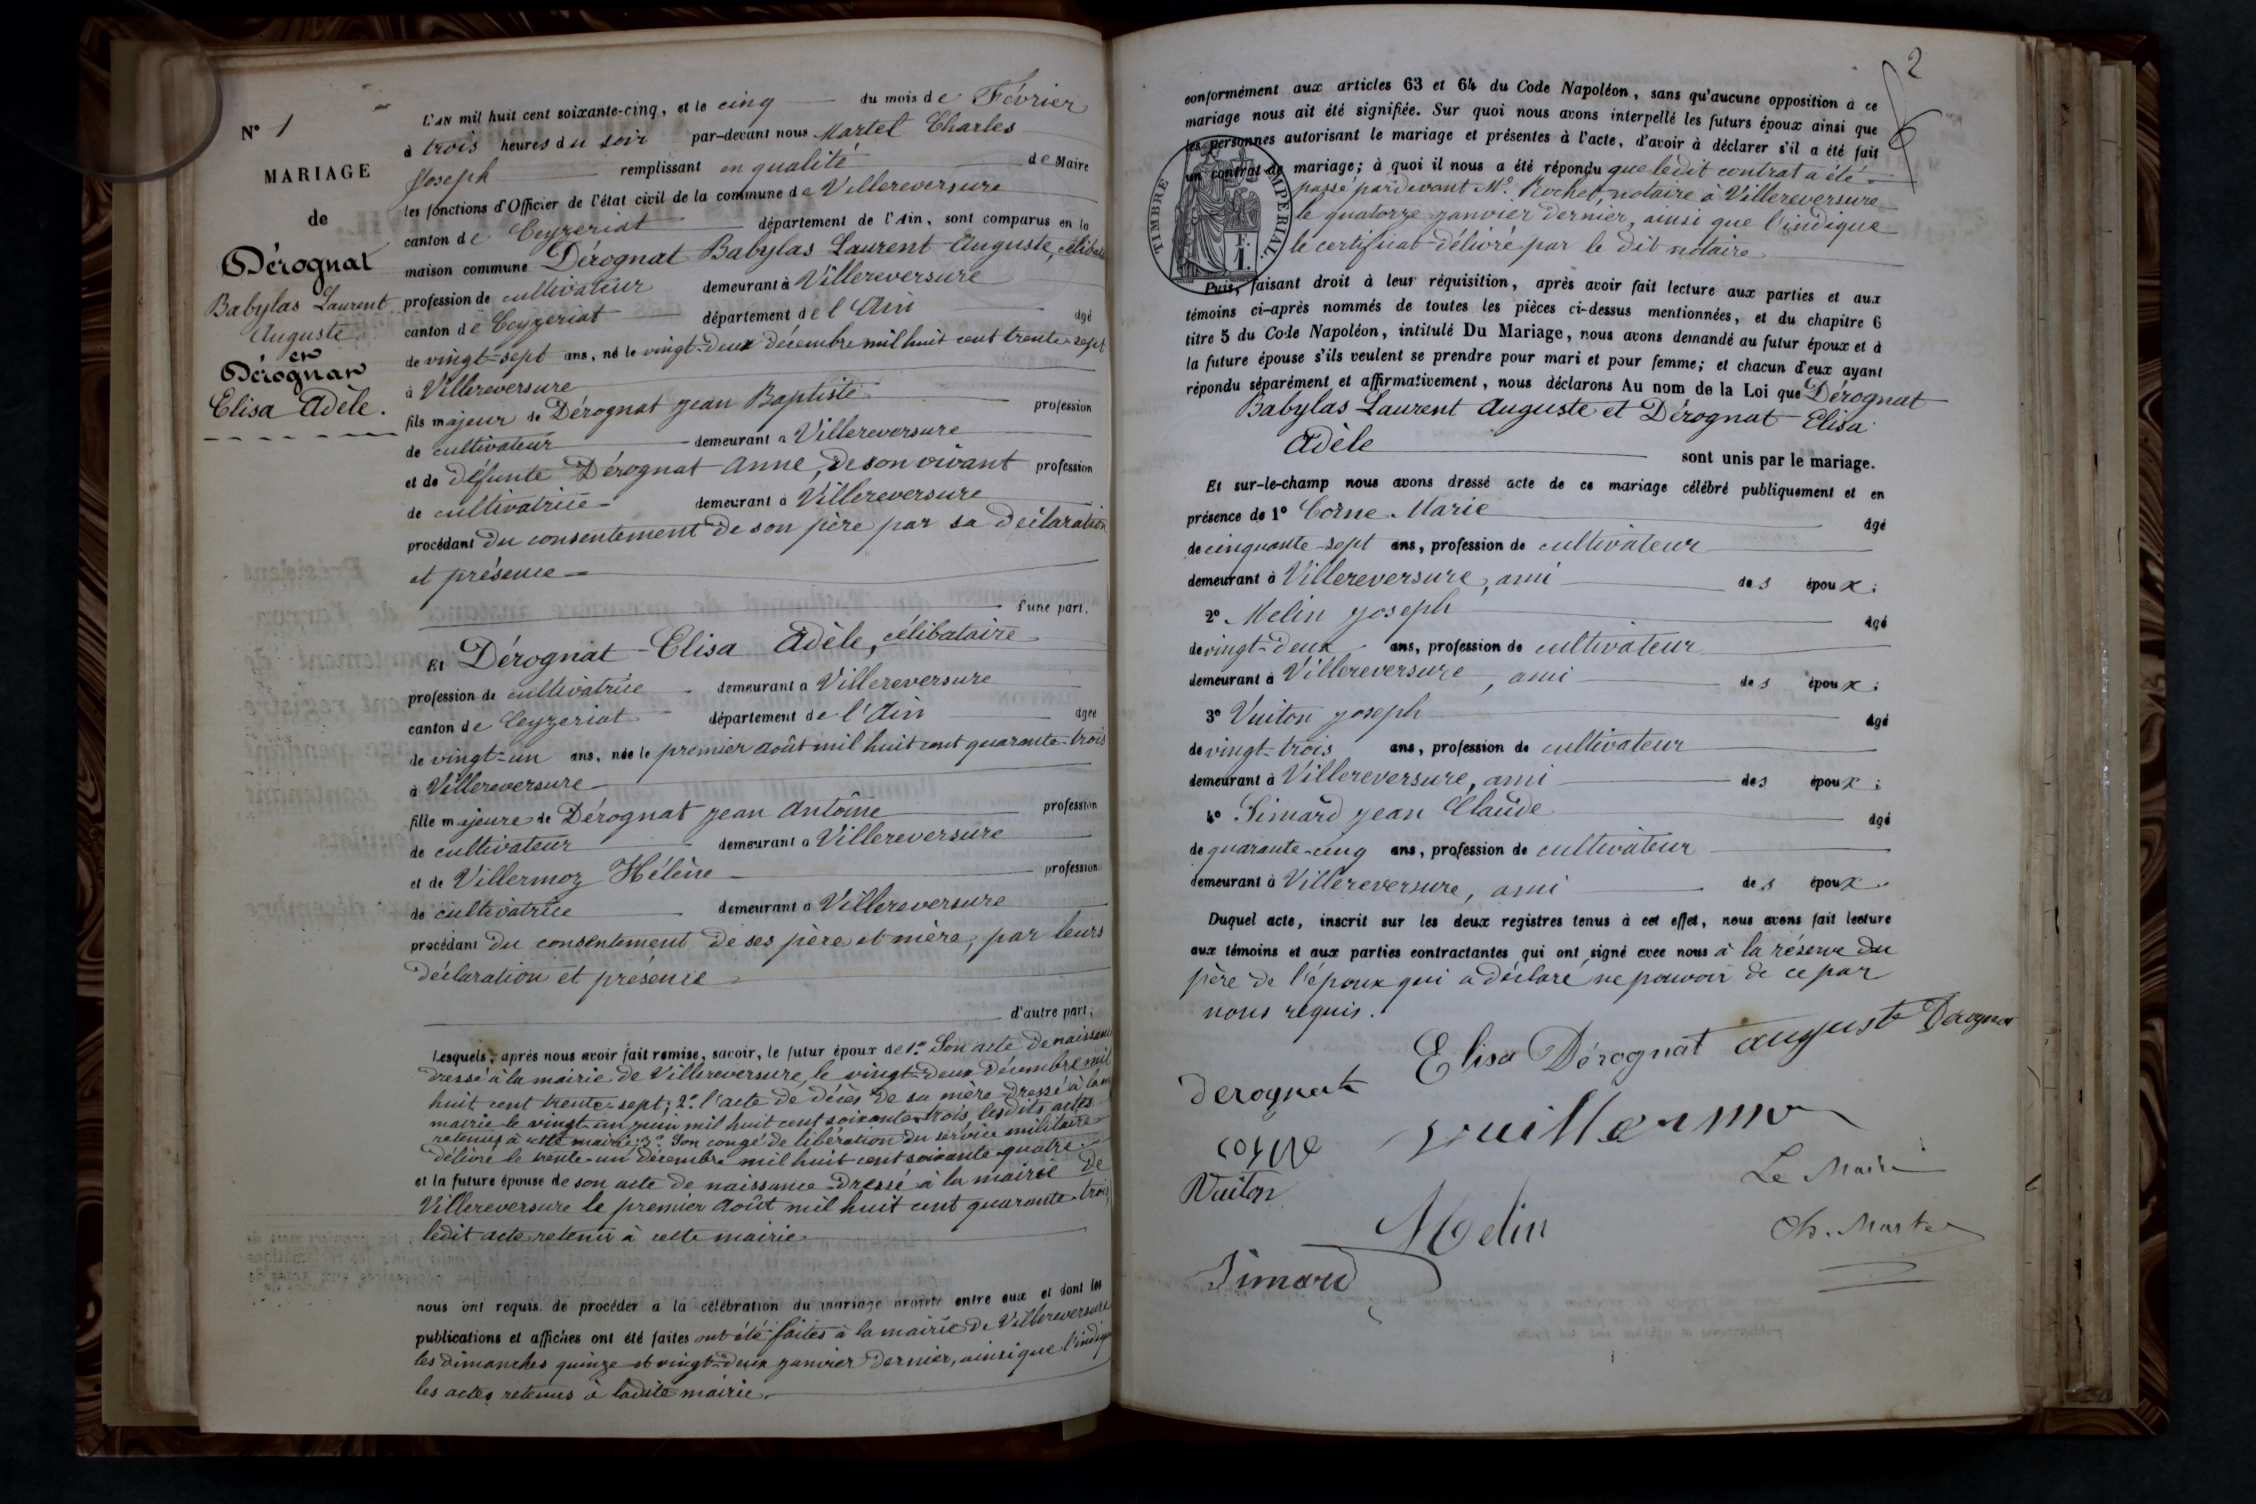 N° 1
MARIAGE
de
Dérognat
Babylas Laurent
Auguste
en
Dérognat
Elisa Adèle.
L'AN mil huit cent soixante-cinq, et le cinq du mois de Février
à trois heures du soir par-devant nous Martel Charles
Joseph remplissant en qualité de Maire
les fonctions d'Officier de l'état civil de la commune de Villereversure
canton de Ceyzeriat département de l'Ain, sont comparus en la
maison commune Dérognat Babylas Laurent Auguste,
profession de cultivateur demeurant à Villereversure
canton de Ceyzeriat département de l'Ain âgé
de vingt-sept ans, né le vingt-deux décembre mil huit cent trente-sept
à Villereversure
fils majeur de Dérognat Jean Baptiste profession
de cultivateur demeurant à Villereversure
et de défunte Dérognat Anne, de son vivant profession
de cultivatrice demeurant à Villereversure
procédant du consentement de son père par sa déclaration
et présence
d'une part.
Et Dérognat Elisa Adèle, célibataire
profession de cultivatrice demeurant à Villereversure
canton de Ceyzeriat département de l'Ain âgée
de vingt-un ans, née le premier Août mil huit cent quarante-trois
à Villereversure
fille majeure de Dérognat Jean Antoine profession
de cultivateur demeurant à Villereversure
et de Villermoz Hélène profession
de cultivatrice demeurant à Villereversure
procédant du consentement de ses père et mère, par leurs
déclaration et présence
d'autre part;
Lesquels, après nous avoir fait remise, savoir, le futur époux de 1° Son acte de naissance
dressé à la mairie de Villereversure, le vingt-deux Décembre mil
huit cent trente-sept; 2° l'acte de décès de sa mère dressé à la
mairie le vingt-un juin mil huit cent soixante-trois lesdits actes
retenus à cette mairie; 3° Son congé de libération du service militaire
délivré le trente-un décembre mil huit cent soixante-quatre
et la future épouse de son acte de naissance dressé à la mairie de
Villereversure le premier Août mil huit cent quarante-trois,
ledit acte retenu à cette mairie
nous ont requis de procéder à la célébration du mariage projeté entre eux et dont les
publications et affiches ont été faites ont été faites à la mairie de Villereversure
les dimanches quinze et vingt-deux janvier dernier, ainsi que l'indique
les actes retenus à ladite mairie.
2
conformément aux articles 63 et 64 du Code Napoléon, sans qu'aucune opposition à ce
mariage nous ait été signifiée. Sur quoi nous avons interpellé les futurs époux ainsi que
les personnes autorisant le mariage et présentes à l'acte, d'avoir à déclarer s'il a été fait
un contrat de mariage; à quoi il nous a été répondu que ledit contrat a été
passé pardevant Me Rochet, notaire à Villereversure
le quatorze janvier dernier, ainsi que l'indique
le certificat délivré par le dit notaire
TIMBRE IMPERIAL
F.
1.
Puis, faisant droit à leur réquisition, après avoir fait lecture aux parties et aux
témoins ci-après nommés de toutes les pièces ci-dessus mentionnées, et du chapitre 6
titre 5 du Code Napoléon, intitulé Du Mariage, nous avons demandé au futur époux et à
la future épouse s'ils veulent se prendre pour mari et pour femme; et chacun d'eux ayant
répondu séparément et affirmativement, nous déclarons Au nom de la Loi que Dérognat
Babylas Laurent Auguste et Dérognat Elisa
Adèle sont unis par le mariage.
Et sur-le-champ nous avons dressé acte de ce mariage célébré publiquement et en
présence de 1° Corne Marie âgé
de cinquante-sept ans, profession de cultivateur
demeurant à Villereversure, ami des époux;
2° Melin Joseph âgé
de vingt-deux ans, profession de cultivateur
demeurant à Villereversure, ami des époux;
3° Vuiton Joseph âgé
de vingt-trois ans, profession de cultivateur
demeurant à Villereversure, ami des époux;
4° Simard Jean Claude âgé
de quarante-cinq ans, profession de cultivateur
demeurant à Villereversure, ami des époux.
Duquel acte, inscrit sur les deux registres tenus à cet effet, nous avons fait lecture
aux témoins et aux parties contractantes qui ont signé avec nous à la réserve du
père de l'époux qui a déclaré ne pouvoir de ce par
nous requis.
Elisa Dérognat auguste Derognat
derognat
corne
Vuiton
Melin
Le Maire
Ch. Martel
Simard